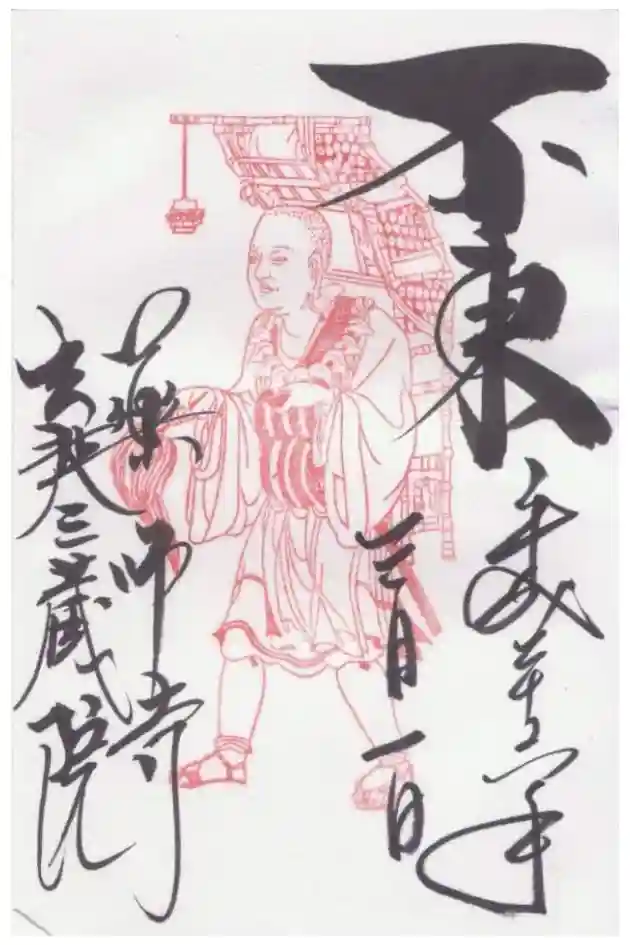 不東
平成年
三月一日
薬師寺
玄奘三蔵院